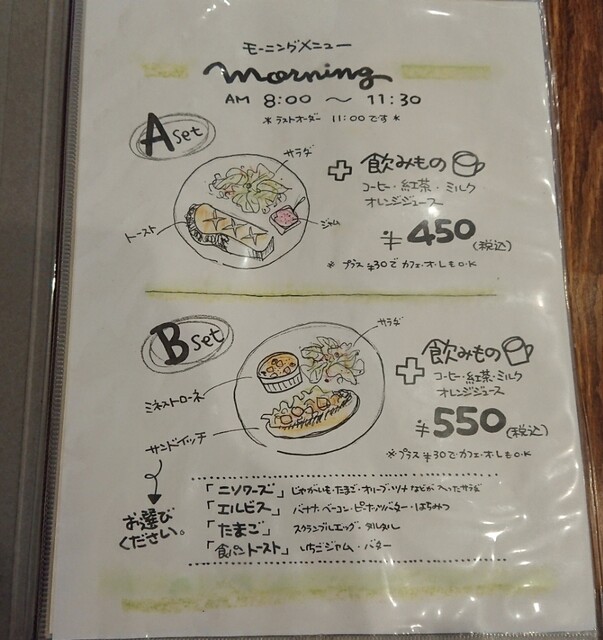 モーニングメニュー
morning
AM 8:00 〜 11:30
＊ラストオーダー 11:00です＊
A set
サラダ
トースト
ジャム
+ 飲みもの
コーヒー・紅茶・ミルク
オレンジジュース
¥450(税込)
※プラス¥30でカフェ・オ・レもO.K
B set
サラダ
ミネストローネ
サンドイッチ
+ 飲みもの
コーヒー・紅茶・ミルク
オレンジジュース
¥550(税込)
※プラス¥30でカフェ・オ・レもO.K
お選び
ください。
「ニソワーズ」じゃがいも・たまご・オリーブ・ツナなどが入ったサラダ
「エルビス」バナナ・ベーコン・ピーナッツバター・はちみつ
「たまご」スクランブルエッグ・タルタル
「食パントースト」いちごジャム・バター